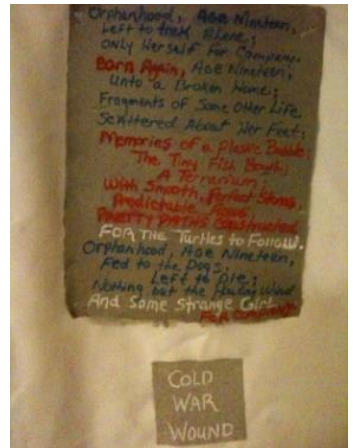 Orphanhood, Age Nineteen,
Left to trek Alone;
Only Herself For Company.
Born Again, Age Nineteen,
Unto a Broken Home;
Fragments of Some Other Life
Scattered About Her Feet;
Memories of a Plastic Bubble;
The Tiny Fish Bowl;
A Terrarium,
With Smooth, Perfect Stones,
Predictable
PRETTY PATHS Constructed
FOR THE Turtles to Follow.
Orphanhood, Age Nineteen,
Fed to the Dogs;
Left to Die;
Nothing but the Howling Wind
And Some Strange Girl
For Company.
COLD
WAR
WOUND